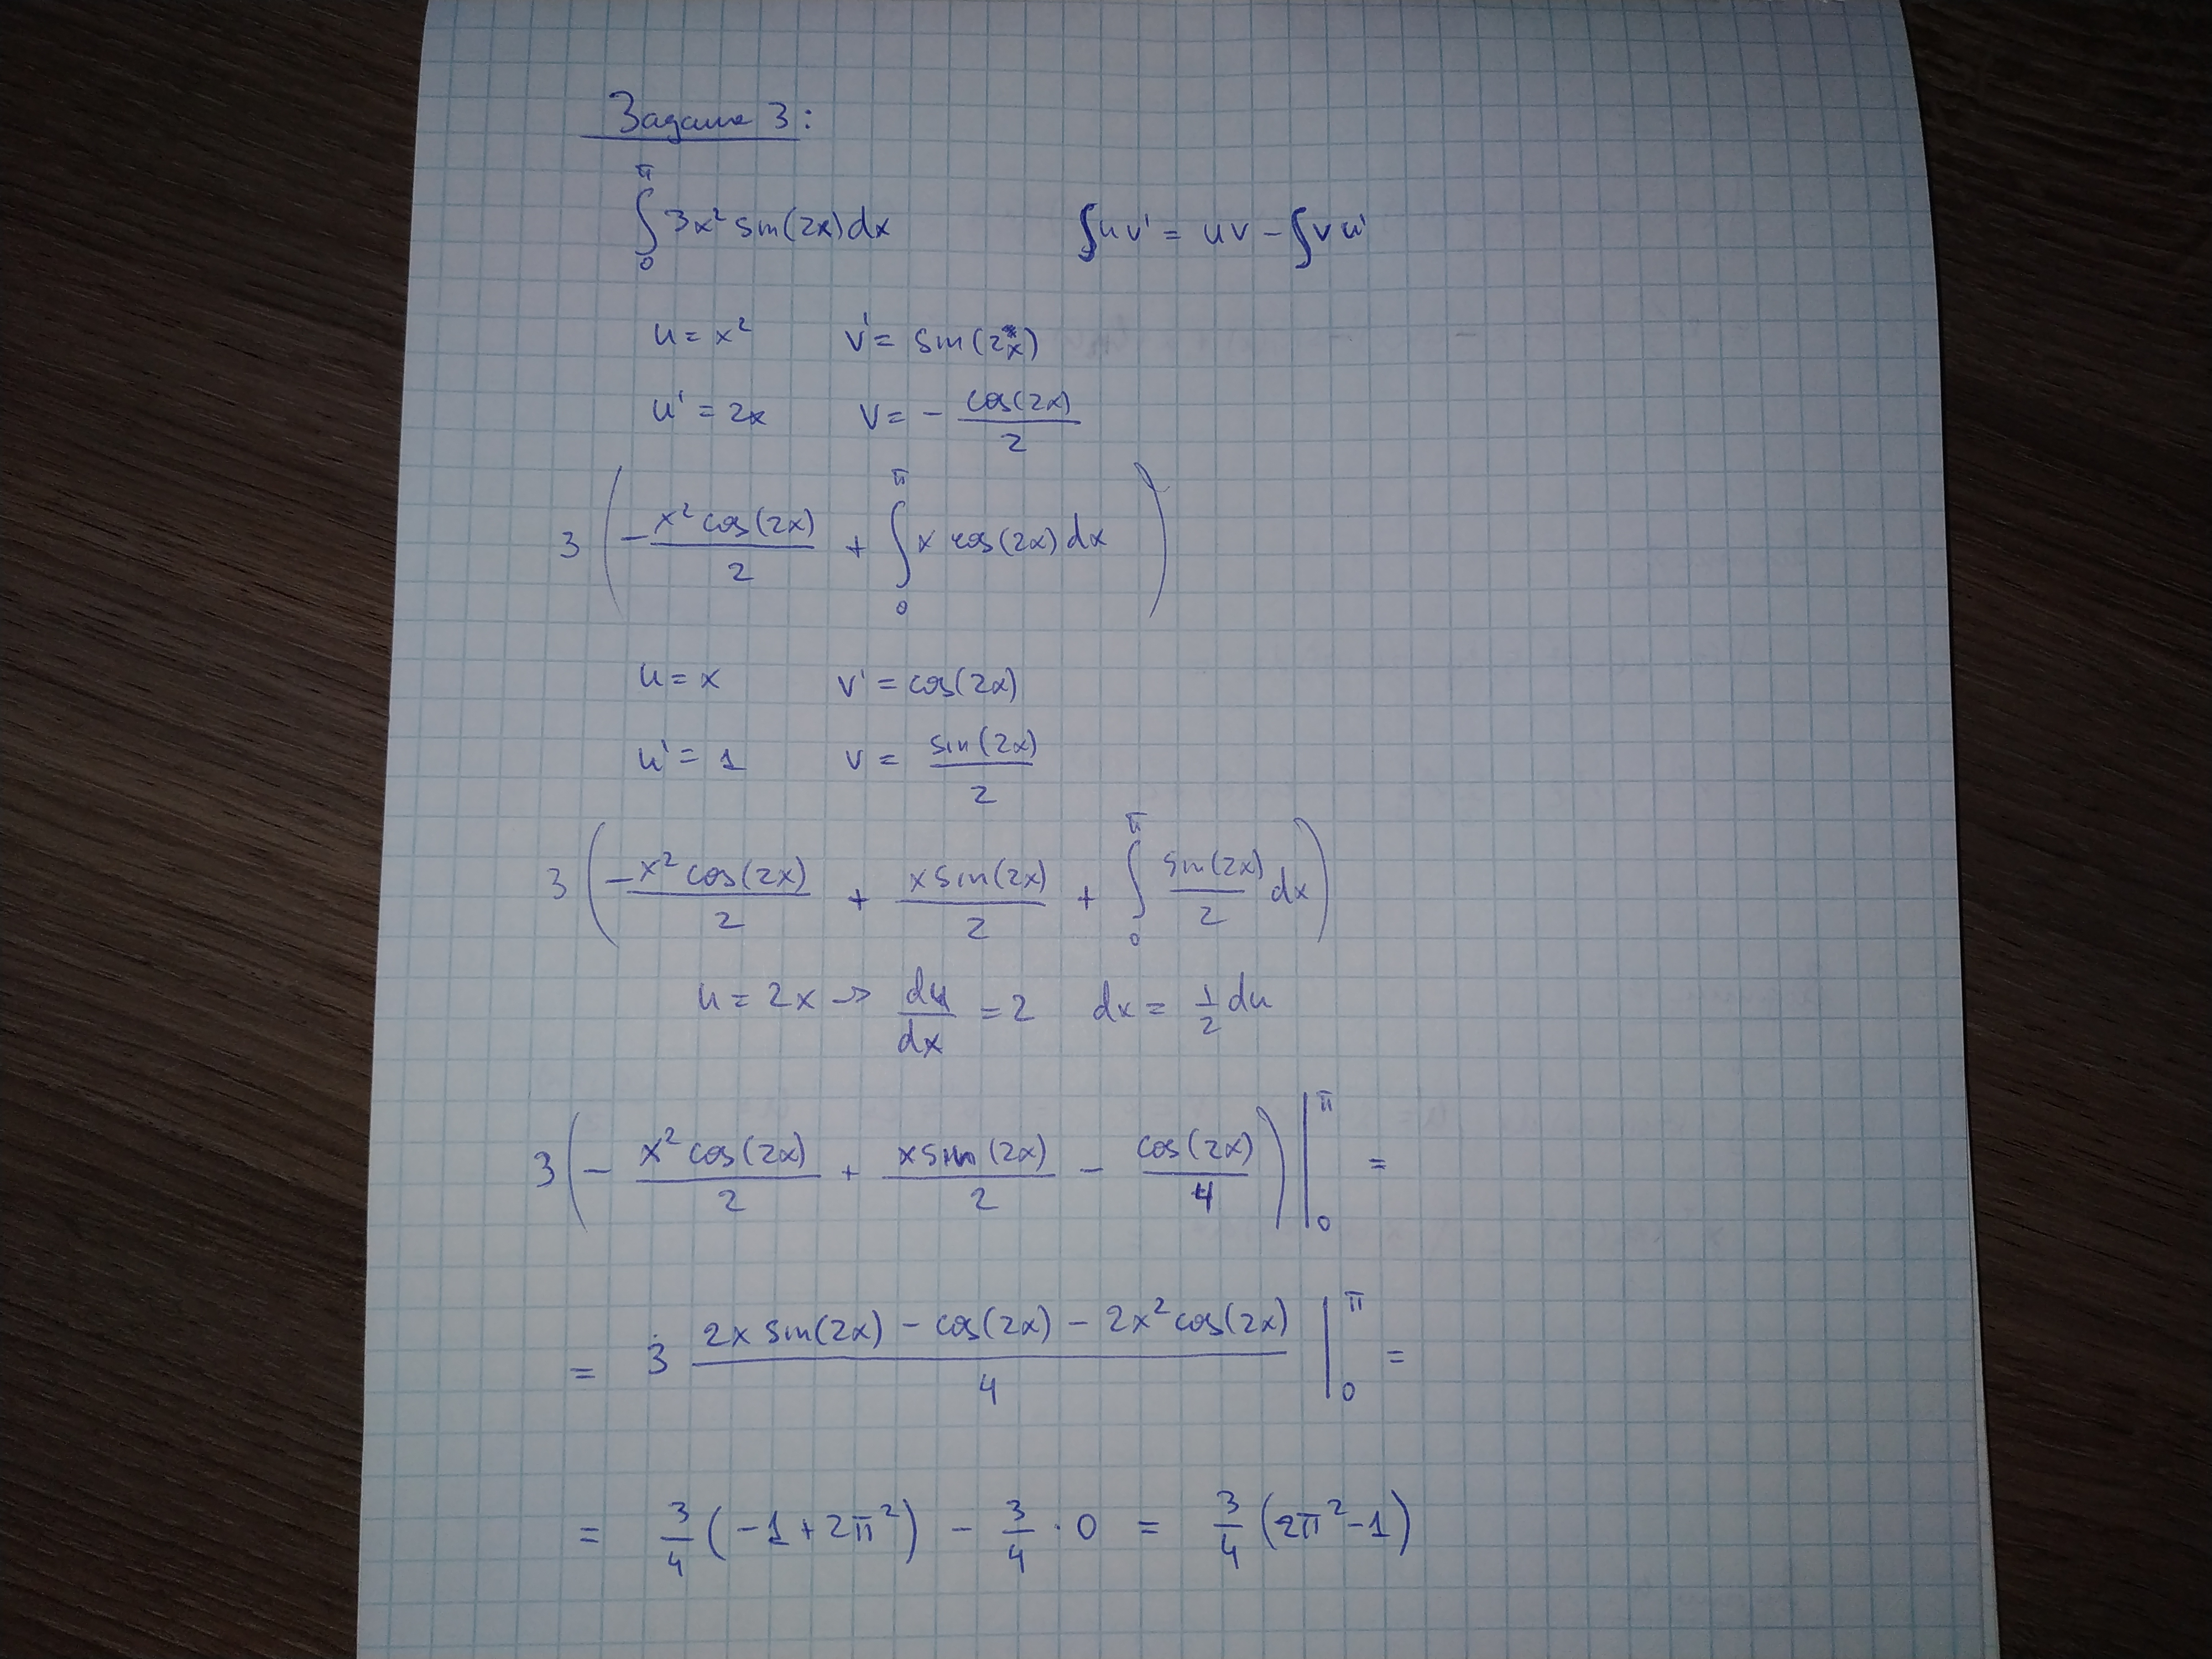 Задача 3:
∫₀^π 3x² sin(2x)dx    ∫uv' = uv - ∫vu'
u = x²    v' = sin(2x)
u' = 2x    v = - cos(2x)/2
3 ( - x² cos(2x)/2 + ∫₀^π x cos(2x) dx )
u = x    v' = cos(2x)
u' = 1    v = sin(2x)/2
3 ( - x² cos(2x)/2 + x sin(2x)/2 + ∫₀^π sin(2x)/2 dx )
u = 2x → du/dx = 2    dx = 1/2 du
3 ( - x² cos(2x)/2 + x sin(2x)/2 - cos(2x)/4 ) |₀^π =
= 3 (2x sin(2x) - cos(2x) - 2x² cos(2x))/4 |₀^π =
= 3/4 (-1 + 2π²) - 3/4 · 0 = 3/4 (2π² - 1)